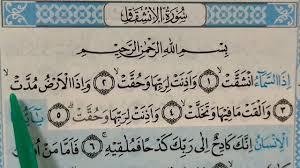 سُورَةُ الْاِنْشِقَاقِ
بِسْمِ اللهِ الرَّحْمٰنِ الرَّحِيْمِ
اِذَا السَّمَآءُ انْشَقَّتْ ۙ ۝١ وَاَذِنَتْ لِرَبِّهَا وَحُقَّتْ ۙ ۝٢ وَاِذَا الْاَرْضُ مُدَّتْ ۙ
۝٣ وَاَلْقَتْ مَا فِيْهَا وَتَخَلَّتْ ۙ ۝٤ وَاَذِنَتْ لِرَبِّهَا وَحُقَّتْ ۗ ۝٥ يٰٓاَيُّهَا
الْاِنْسَانُ اِنَّكَ كَادِحٌ اِلٰى رَبِّكَ كَدْحًا فَمُلٰقِيْهِ ۚ ۝٦ فَاَمَّا مَنْ